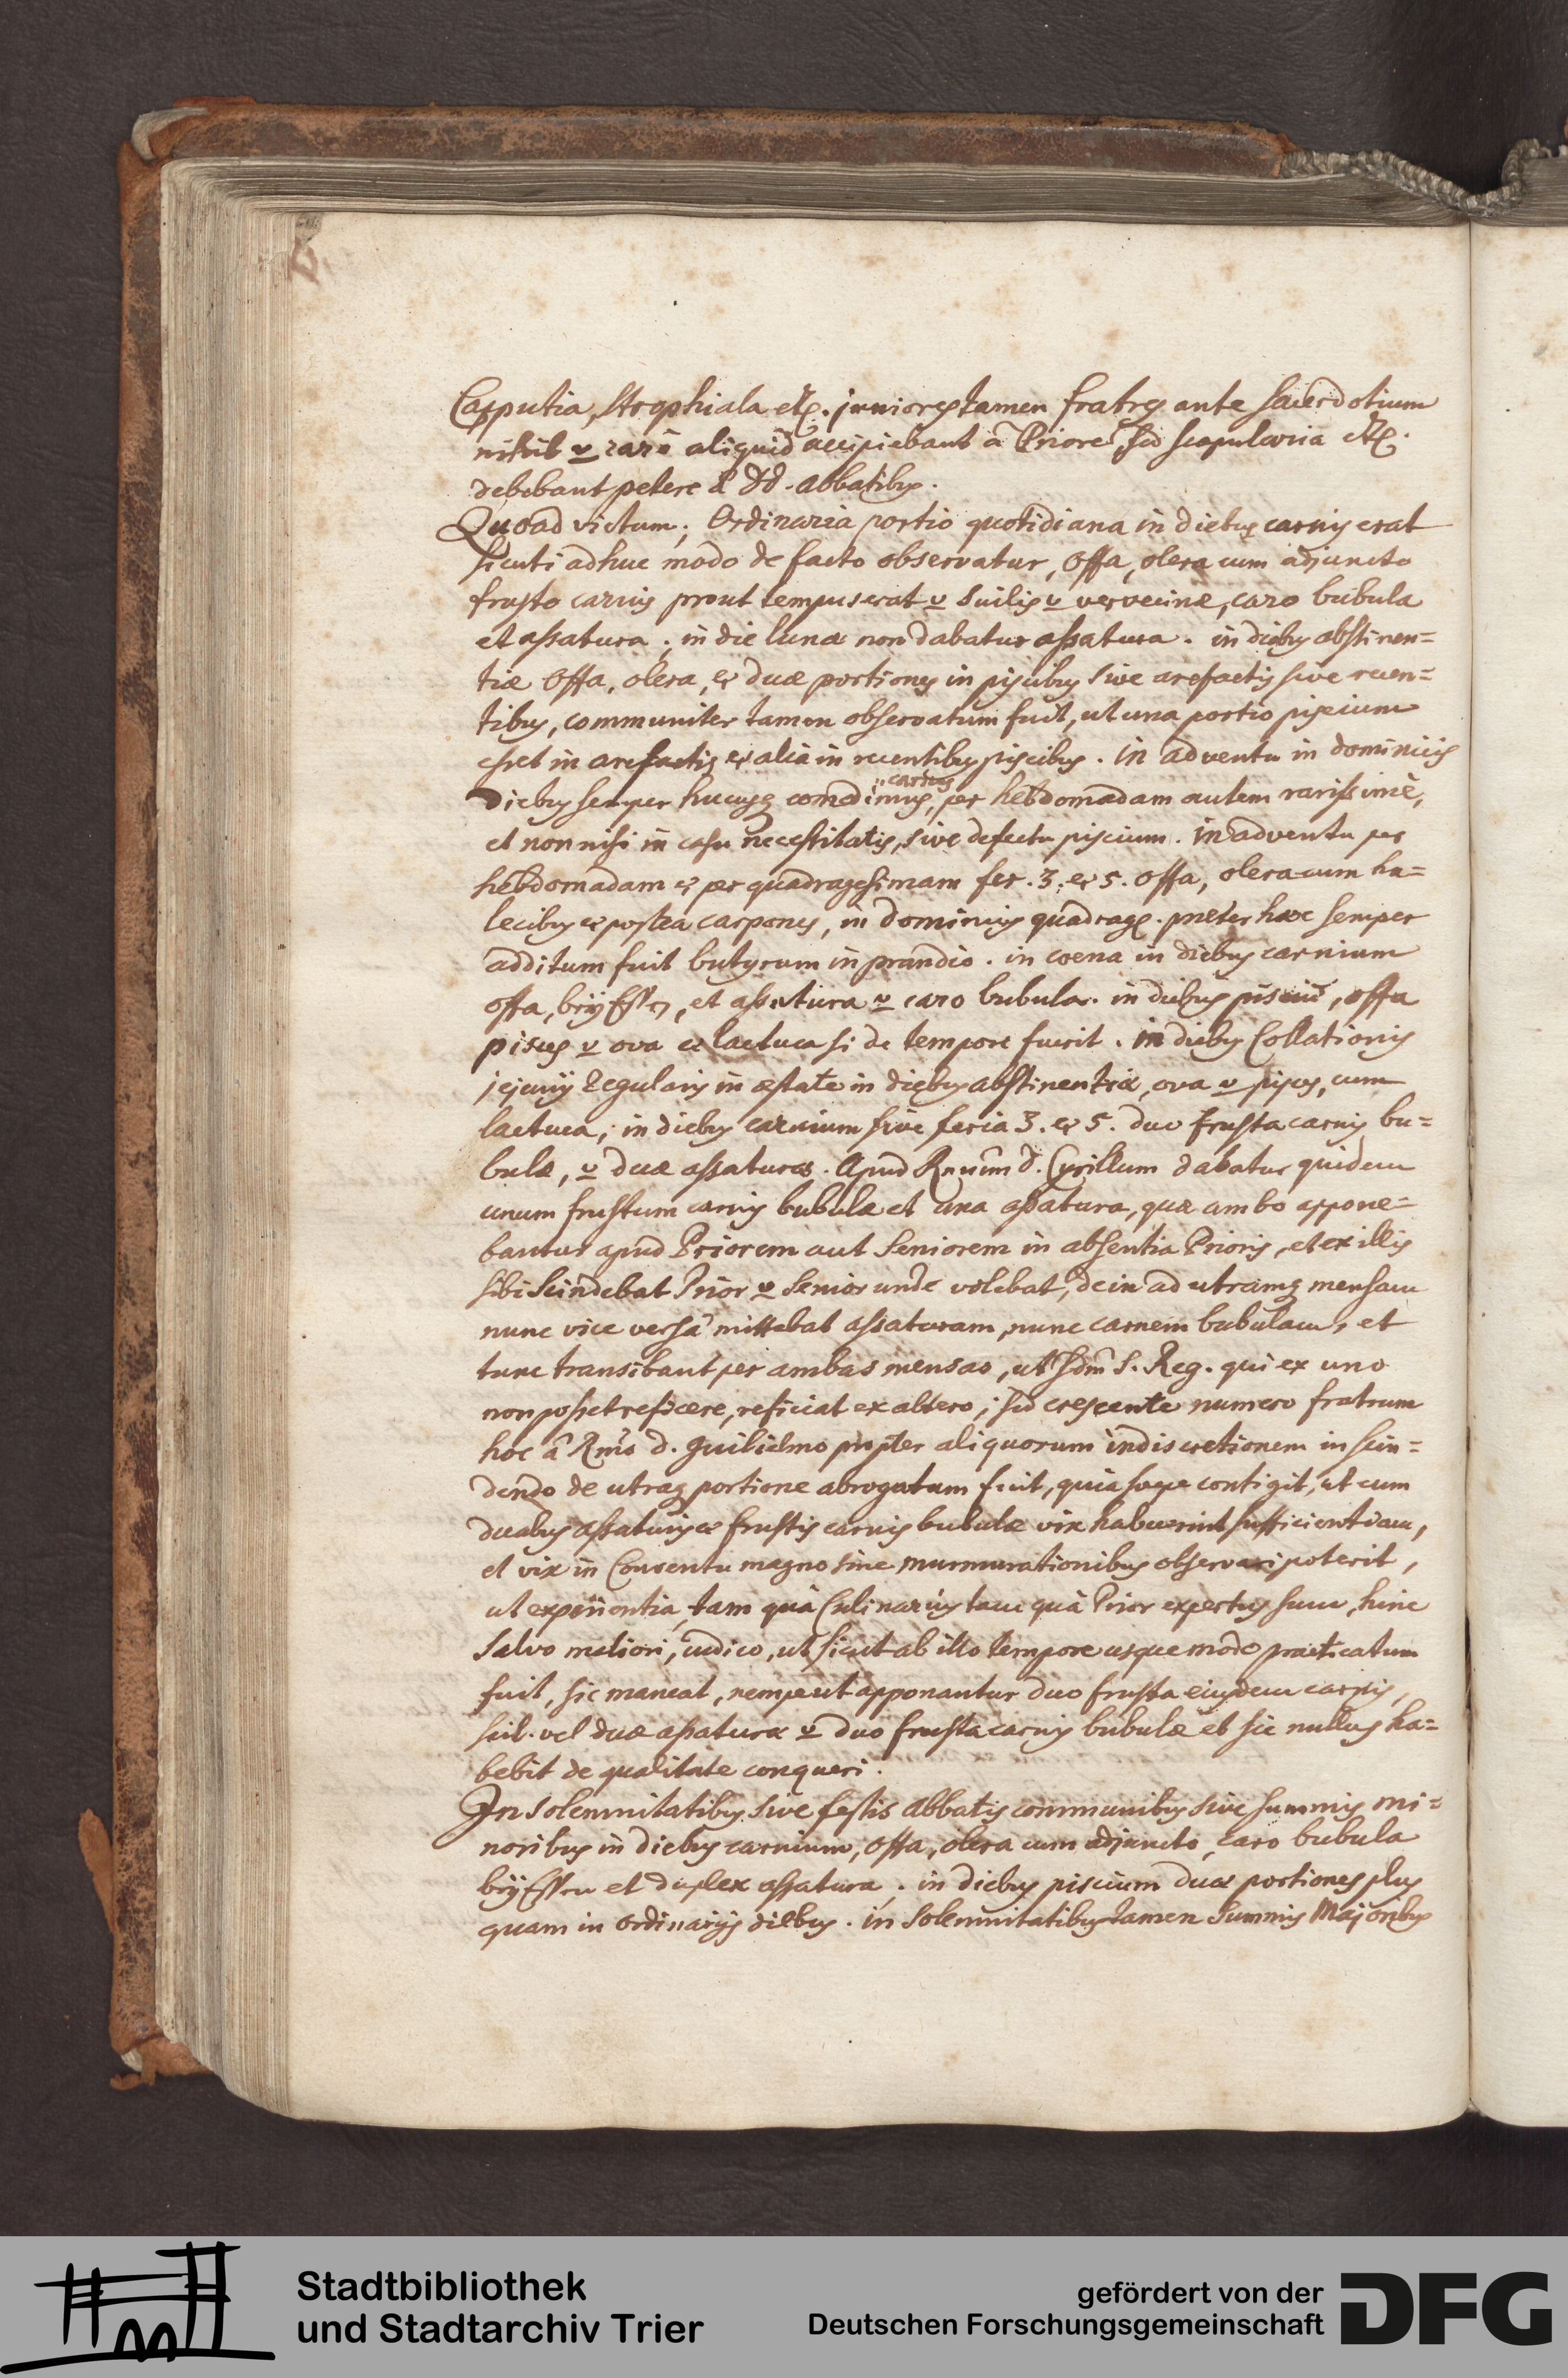 Capputia, strophiala etc. juniores tamen fratres ante sacerdotium
nihil vel rarò aliquid accipiebant a Priore sed scapularia etc.
debebant petere a dd. abbatibus.
Quoad victum; Ordinaria portio quotidiana in diebus carnis erat
sicuti adhuc modo de facto observatur, offa, olera cum adjuncto
frusto carnis prout tempus erat vel suilis vel vervecinæ, caro bubula
et assatura; in die lunæ non dabatur assatura. in diebus abstinen=
tiæ offa, olera, et duæ portiones in piscibus sive arefactis sive recen=
tibus, communiter tamen observatum fuit, ut una portio piscium
esset in arefactis et alia in recentibus piscibus. in adventu in dominicis
carnes
diebus semper hucusque comedimus, per hebdomadam autem rarissimè,
et non nisi in casu necessitatis, sive defectu piscium. in adventu per
hebdomadam et per quadragesimam fer. 3. et 5. offa, olera cum ha=
lecibus et postea carpones, in dominicis quadrag. præter hæc semper
additum fuit butyrum in prandio. in coena in diebus carnium
offa, brÿ Essen, et assatura vel caro bubula. in diebus pisciũ, offa
pisces vel ova et lactuca si de tempore fuerit. in diebus Collationis
jejunij Regularis in æstate in diebus abstinentiæ, ova vel pisces, cum
lactuca; in diebus carnium sive feria 3. et 5. duo frusta carnis bu=
bulæ, vel duæ assaturæ. apud Rmum d. Cyrillum dabatur quidem
unum frustum carnis bubulæ et una assatura, quæ ambo appone=
bantur apud Priorem aut Seniorem in absentia Prioris, et ex illis
sibi scindebat Prior vel Senior unde volebat, dein ad utramque mensam
nunc vice versâ mittebat assaturam, nunc carnem bubulam, et
tunc transibant per ambas mensas, ut sdm S. Reg. qui ex uno
non posset reficere, reficiat ex altero; sed crescente numero fratrum
hoc â Rmo d. Guilielmo propter aliquorum indiscretionem in scin=
dendo de utraque portione abrogatum fuit, quia sæpe contigit, ut cum
duabus assaturis et frustis carnis bubulæ vix habuerint sufficientiam,
et vix in Conventu magno sine murmurationibus observari poterit,
ut experientia, tam quà Culinarius tam quà Prior expertus sum, hinc
salvo meliori, iudico, ut sicut ab illo tempore usque modo practicatum
fuit, sic maneat, nempe ut apponantur duo frusta eiusdem carnis,
scil. vel duæ assaturæ vel duo frusta carnis bubulæ et sic nullus ha=
bebit de qualitate conqueri.
In solemnitatibus sive festis Abbatis communibus sive summis mi=
noribus in diebus carnium, offa, olera cum adjuncto, caro bubula
brÿ Essen et duplex assatura. in diebus piscium duæ portiones plus
quam in ordinarijs diebus. in solemnitatibus tamen summis Majoribus
Stadtbibliothek
und Stadtarchiv Trier
gefördert von der
Deutschen Forschungsgemeinschaft
DFG